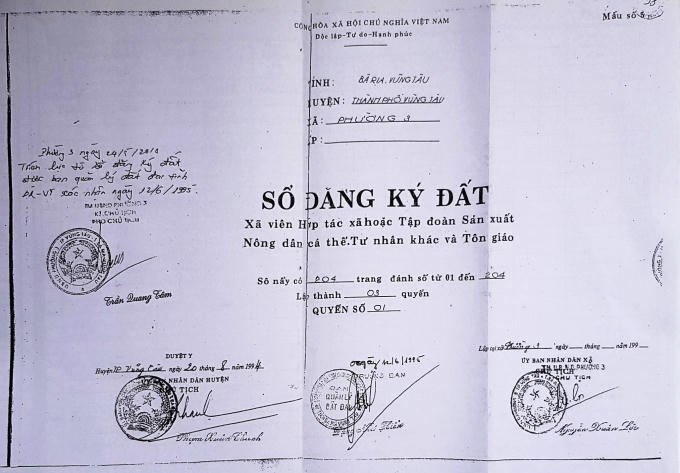 Mẫu số 5
CỘNG HÒA XÃ HỘI CHỦ NGHĨA VIỆT NAM
Độc lập-Tự do-Hạnh phúc
TỈNH: BÀ RỊA. VŨNG TÀU
HUYỆN: THÀNH PHỐ VŨNG TÀU
XÃ: PHƯỜNG 3
ẤP:
Phường 3 ngày 24/5/2010
Trích lục từ sổ đăng ký đất
được ban quản lý đất đai tỉnh
BR-VT xác nhận ngày 12/6/1995.
TM UBND PHƯỜNG 3
KT.CHỦ TỊCH
PHÓ CHỦ TỊCH
Trần Quang Tâm
SỔ ĐĂNG KÝ ĐẤT
Xã viên Hợp tác xã hoặc Tập đoàn Sản xuất
Nông dân cá thể.Tư nhân khác và Tôn giáo
Sô nầy có 204 trang đánh số từ 01 đến 204
Lập thành 03 quyển
QUYỂN SỐ 01
DUYỆT Y
Huyện TP Vũng Tàu ngày 20 tháng 8 năm 1994
NHÂN DÂN HUYỆN
CHỦ TỊCH
ngày 12/6/1995
TRƯỞNG BAN
BAN
QUẢN LÝ
ĐẤT ĐAI
Lập tại xã Phường 3 ngày tháng năm 199
ỦY BAN NHÂN DÂN XÃ
TM U.B.N.D PHƯỜNG 3
CHỦ TỊCH
Nguyễn Xuân Lộc